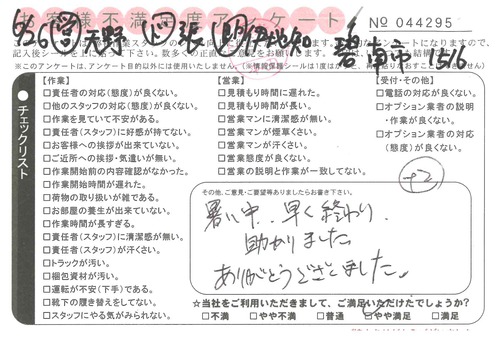 お客様不満足度アンケート
No 044295
9/26 天野 張 伊地知 碧南市 15/6
※このアンケートは、アンケート目的以外には使用いたしません。
チェックリスト
【作業】
□責任者の対応(態度)が良くない。
□他のスタッフの対応(態度)が良くない。
□作業を見ていて不安がある。
□責任者(スタッフ)に好感が持てない。
□お客様への挨拶が出来ていない。
□ご近所への挨拶・気遣いが無い。
□作業開始前の内容確認がなかった。
□作業開始時間が遅れた。
□荷物の取り扱いが雑である。
□お部屋の養生が出来ていない。
□作業時間が長すぎる。
□責任者(スタッフ)に清潔感が無い。
□責任者(スタッフ)が汗くさい。
□トラックが汚い。
□梱包資材が汚い。
□運転が安全(下手)である。
□靴下の履き替えをしてない。
□スタッフにやる気が感じられない。
【営業】
□見積もり時間に遅れた。
□見積もり時間が長い。
□営業マンに清潔感が無い。
□営業マンが煙草くさい。
□営業マンが汗くさい。
□営業態度が良くない。
□営業の説明と作業が一致してない。
【受付・その他】
□電話の対応が良くない。
□オプション業者の説明・作業が良くない。
□オプション業者の対応(態度)が良くない。
+2
その他、ご意見・ご要望等ありましたらお書き下さい。
暑い中、早く終わり、
助かりました
ありがとうございました。
☆当社をご利用いただきまして、ご満足いただけたでしょうか?
□不満 □やや不満 □普通 □やや満足 □満足